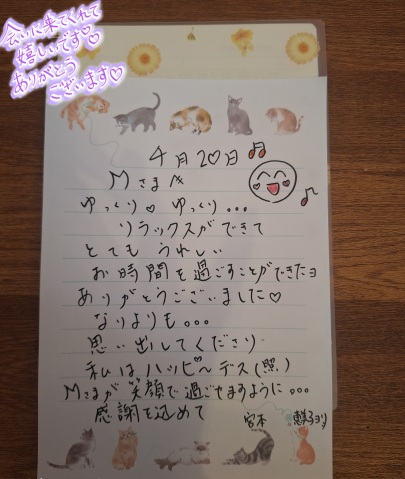 会いに来てくれて
嬉しいです♡
ありがとう
ございます♡
4月20日
Mさまへ
ゆっくり♡ ゆっくり...
リラックスができて
とてもうれしい
お時間を過ごすことができたヨ
ありがとうございました♡
なりよりも。。。
思い出してくださり
私はハッピ〜デス(照)
Mさまが笑顔で過ごせますように...
感謝を込めて
宮本 恵美子ヨリ